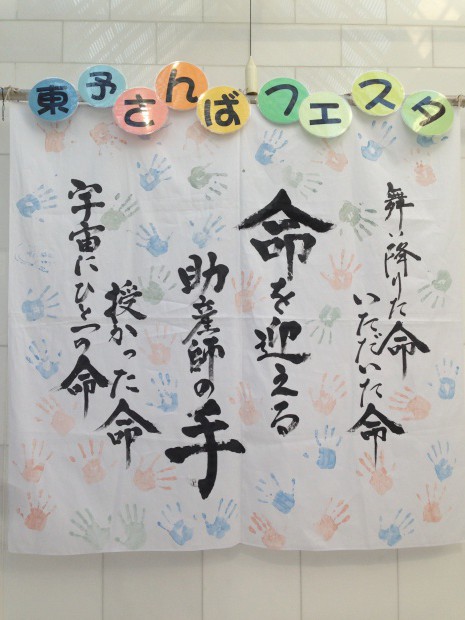 東予さんばフェスタ
舞い降りた命
いただいた命
命を迎える
助産師の手
授かった命
宇宙にひとつの命